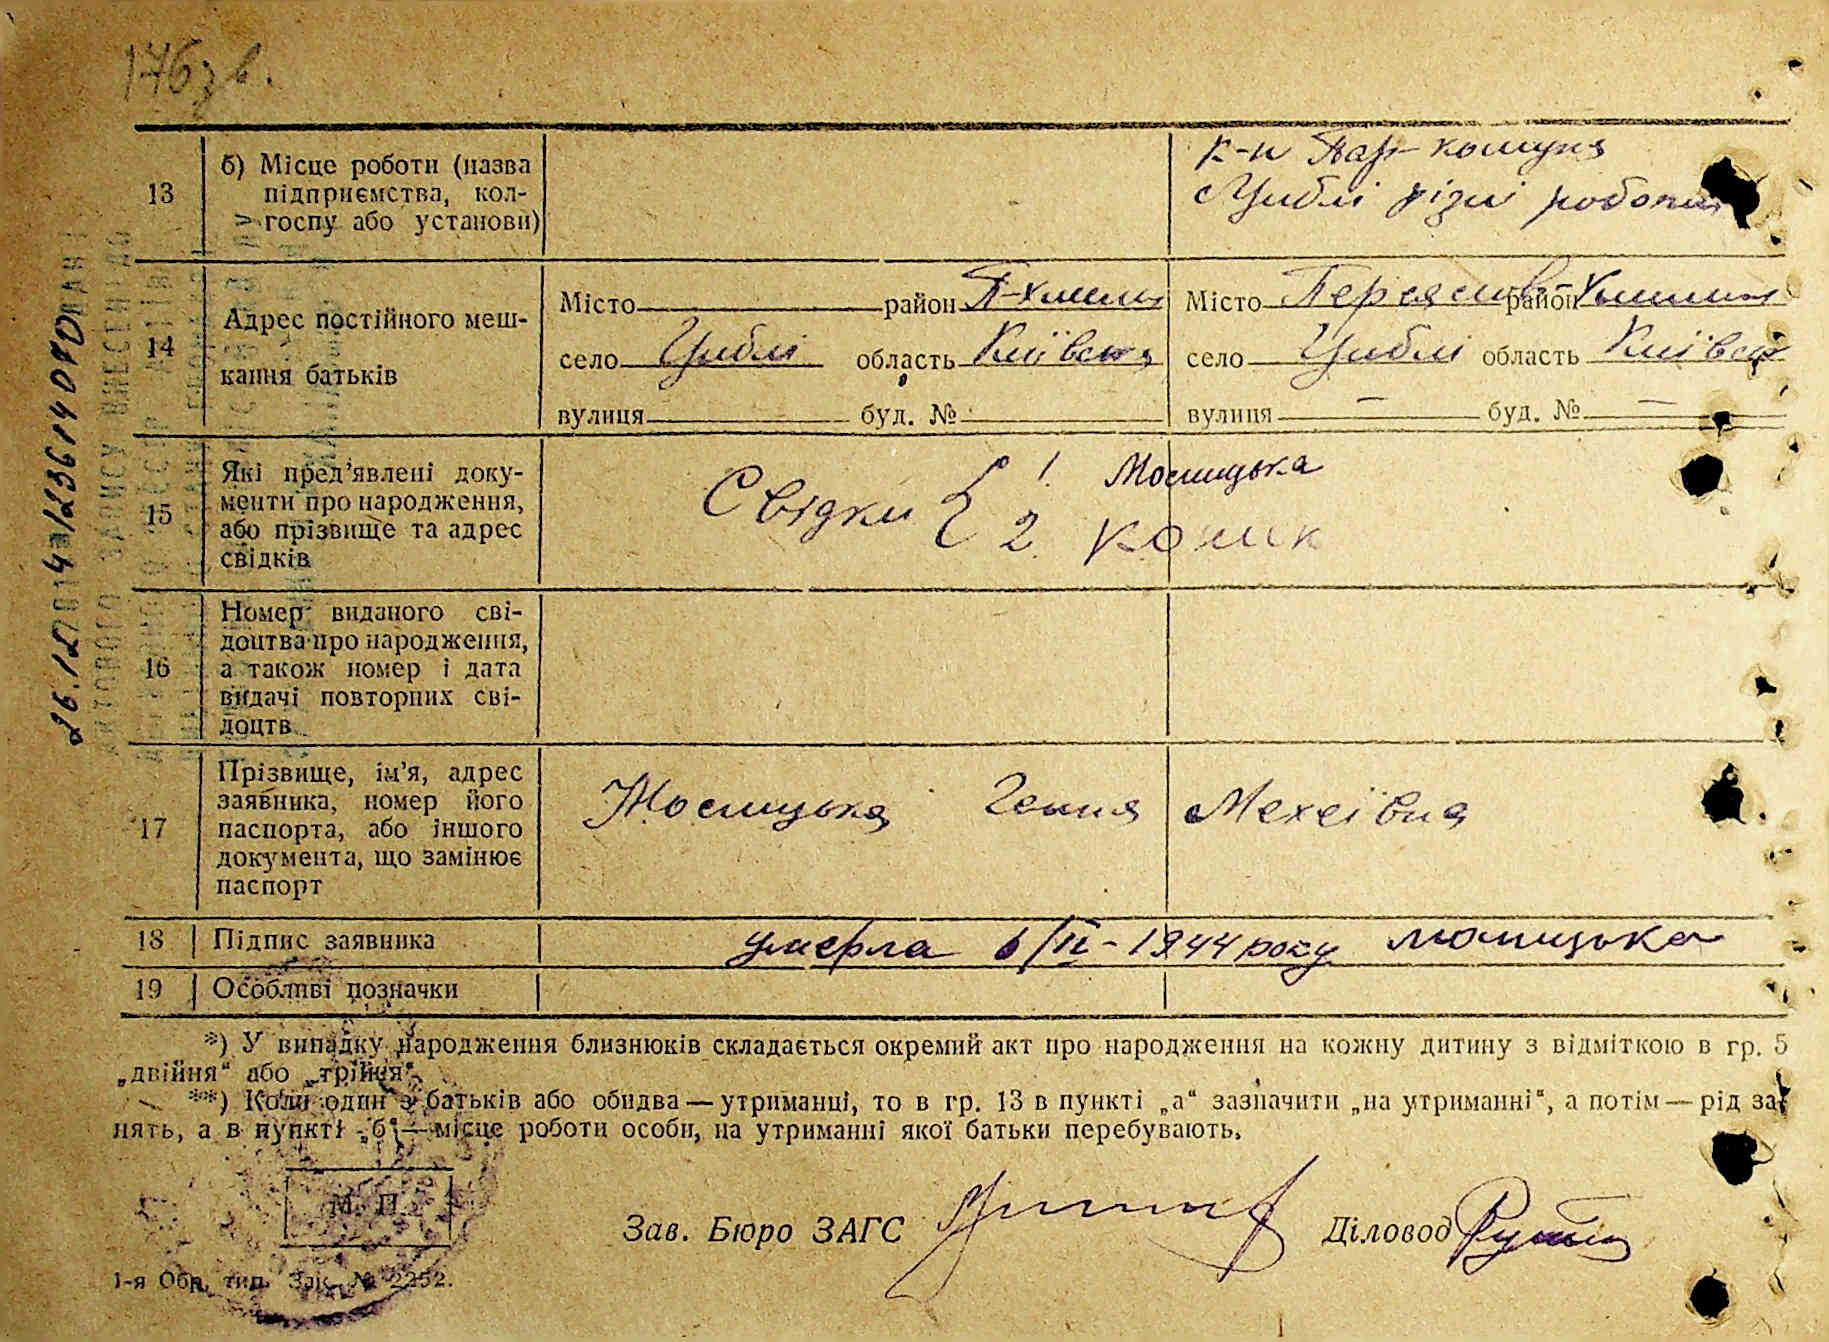 176 зв.
13
б) Місце роботи (назва
підприємства, кол-
госпу або установи)
к-п Пар комуна
Циблі різні роботи
14
Адрес постійного меш-
кання батьків
Місто район П-Хмельн
село Циблі область Київська
вулиця буд. №
Місто Переяслов- район Хмельн
село Циблі область Київськ
вулиця — буд. № —
15
Які пред’явлені доку-
менти про народження,
або прізвище та адрес
свідків
Свідки { 1. Мосицька
2. Комик
16
Номер виданого сві-
доцтва про народження,
а також номер і дата
видачі повторних сві-
доцтв
17
Прізвище, ім’я, адрес
заявника, номер його
паспорта, або іншого
документа, що замінює
паспорт
Мосицька Ганна Мехеївна
18 Підпис заявника
умерла 6/II-1944 року
19 Особливі позначки
*) У випадку народження близнюків складається окремий акт про народження на кожну дитину з відміткою в гр. 5
„двійня“ або „трійня“.
**) Коли один з батьків або обидва — утриманці, то в гр. 13 в пункті „а“ зазначити „на утриманні“, а потім — рід за-
нять, а в пункті „б“ — місце роботи особи, на утриманні якої батьки перебувають.
М. П.
Зав. Бюро ЗАГС
Діловод
1-я Обр. тип. Зак. № 2252.